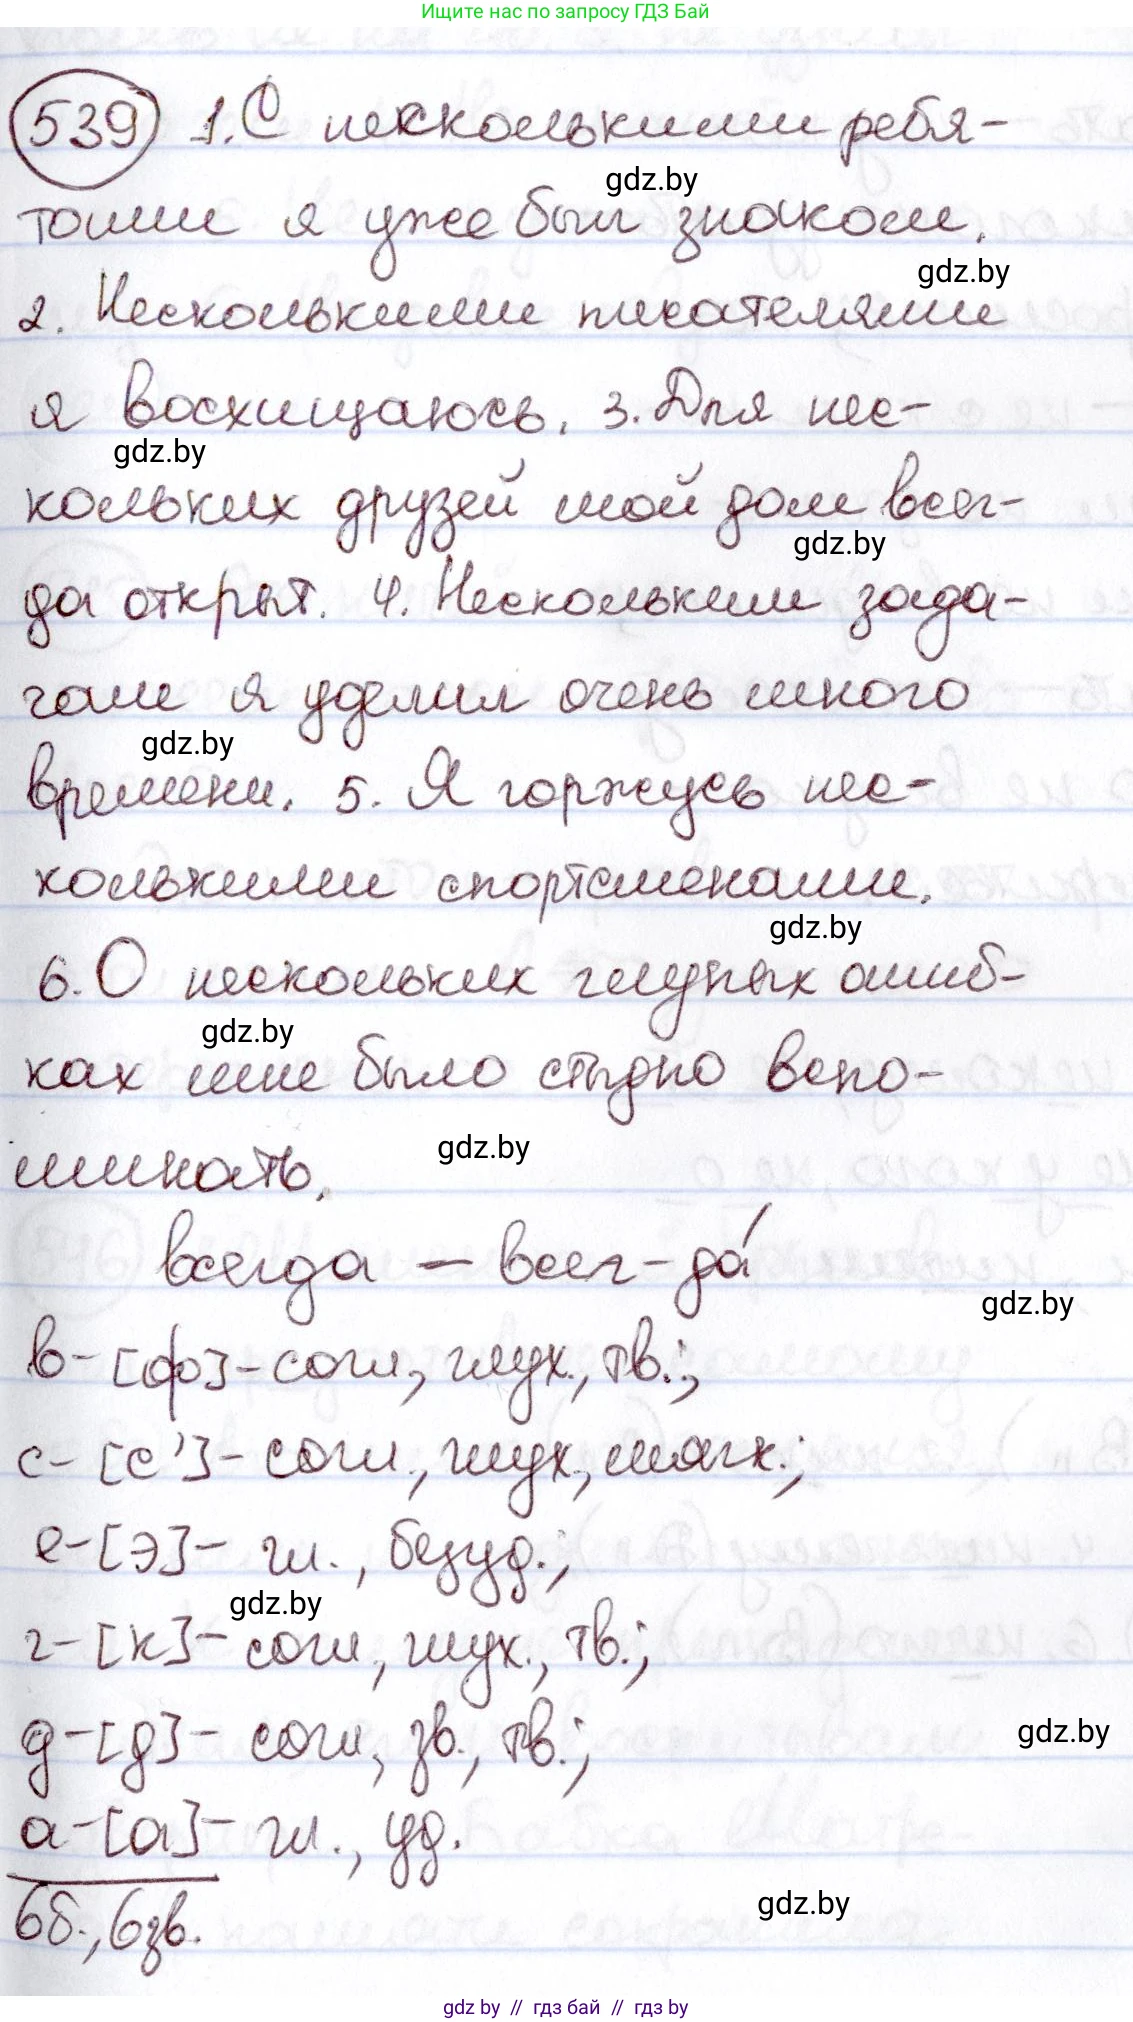 Ищите нас по запросу ГДЗ Бай
539 1. С несколькими ребя-
gdz.by
тами я уже был знаком.
gdz.by
2. Несколькими писателями
я восхищаюсь. 3. Для нес-
gdz.by
кольких друзей мой дом всег-
gdz.by
да открыт. 4. Нескольким зада-
чам я уделил очень много
gdz.by
времени. 5. Я горжусь нес-
колькими спортсменами.
gdz.by
6. О нескольких глупых ошиб-
gdz.by
ках мне было стыдно вспо-
gdz.by
минать.
всегда – всег-да́
gdz.by
в-[ф]-согл., глух., тв.;
с-[с']-согл., глух., мягк.;
е-[э]- гл., безуд.;
gdz.by
г-[к]- согл., глух., тв.;
д-[д]- согл., зв., тв.;
gdz.by
а-[а]- гл., уд.
gdz.by
6б., 6зв.
gdz by // гдз бай // gdz by